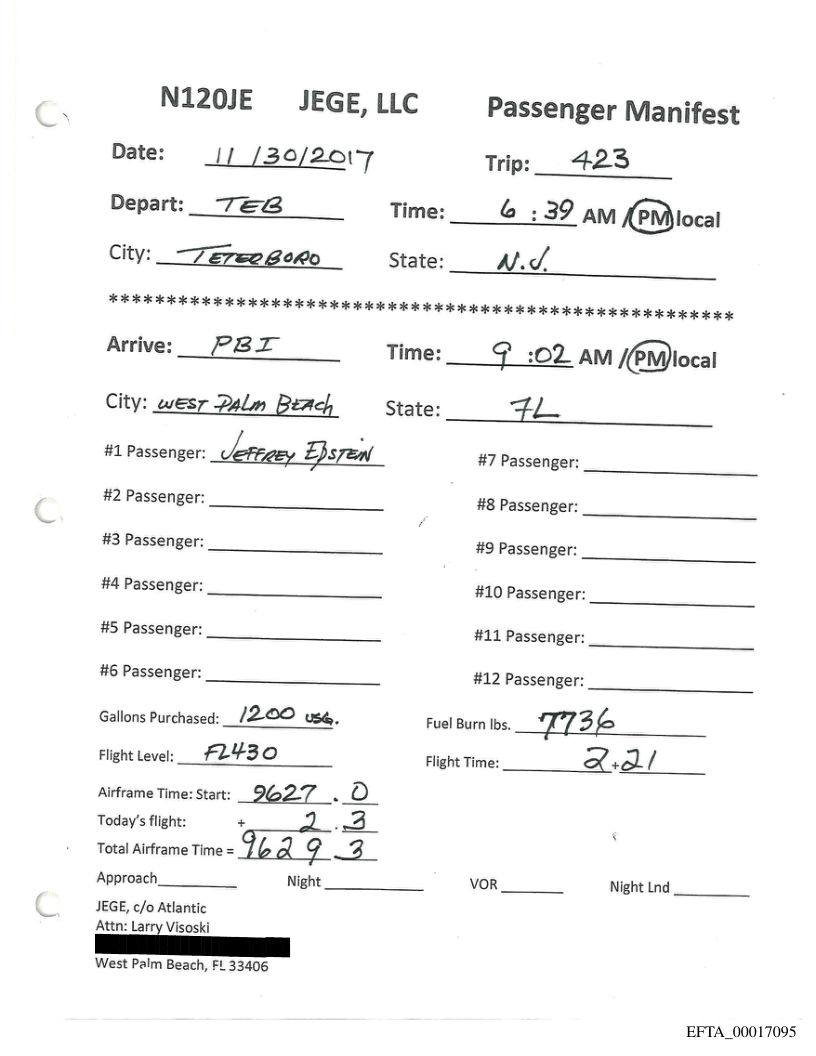 N120JE JEGE, LLC Passenger Manifest
Date: 11/30/2017 Trip: 423
Depart: TEB Time: 6:39 AM / PM local
City: TETERBORO State: N.J.
******************************************************
Arrive: PBI Time: 9:02 AM / PM local
City: WEST PALM BEACH State: FL
#1 Passenger: JEFFREY EPSTEIN #7 Passenger:
#2 Passenger: #8 Passenger:
#3 Passenger: #9 Passenger:
#4 Passenger: #10 Passenger:
#5 Passenger: #11 Passenger:
#6 Passenger: #12 Passenger:
Gallons Purchased: 1200 USG. Fuel Burn lbs. 7736
Flight Level: FL430 Flight Time: 2+21
Airframe Time: Start: 9627.0
Today's flight: + 2.3
Total Airframe Time = 9629.3
Approach Night VOR Night Lnd
JEGE, c/o Atlantic
Attn: Larry Visoski
West Palm Beach, FL 33406
EFTA_00017095